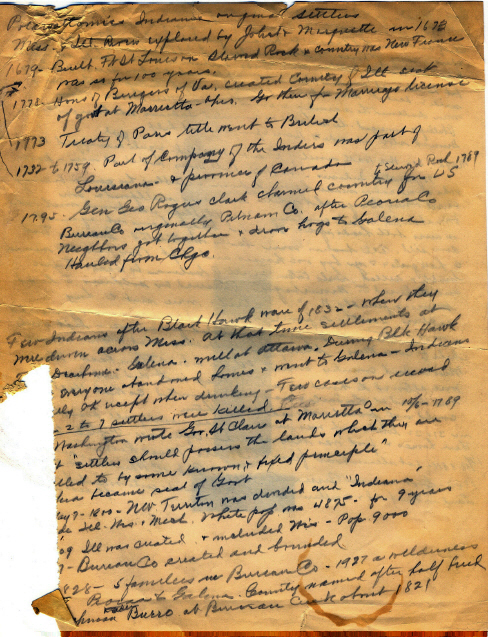 Potawattomies Indians original settlers
Miss. & Ill. Rivers explored by Joliet & Marquette in 1673
1679 - Built Ft St Louis on Starved Rock & country was New France
was so for 100 years.
1778 House of Burgess of Va. created County of Ill seat
of govt at Marrietta - Ohio. Go there for Marriage license
1773 Treaty of Paris title went to British
1732 to 1759. Part of Company of the Indies was part of
Louisiana - & province of Canada
& Starved Rock 1769
1795 - Gen Geo Rogers Clark claimed country for US
Bureau Co originally Putnam Co. after Peoria Co
Neighbors got together & drove hogs to Galena
Hauled from Chgo.
Few Indians after the Black Hawk war of 1832 - when they
were driven across Miss. At that time settlements at
Dearborn - Galena - mill at Ottawa. During Blk Hawk
everyone abandoned homes & went to Galena - Indians
ok except when drinking - Few cases on record
2 to 7 settlers were killed
Washington wrote Gov. St Clair at Marrietta in 10/6-1789
"settlers should possess the lands which they are
to by some known & fixed principle"
became seat of Govt
7 - 1800 - NW Territory was divided and "Indiana"
Ill - Wis - Mich. White pop was 4875 - for 9 years
09 Ill was created & included Wis - Pop 9000
- Bureau Co created and bounded
1828 - 5 families in Bureau Co - 1927 a wilderness
to Galena. County named after half breed
Buero at Bureau Creek about 1821